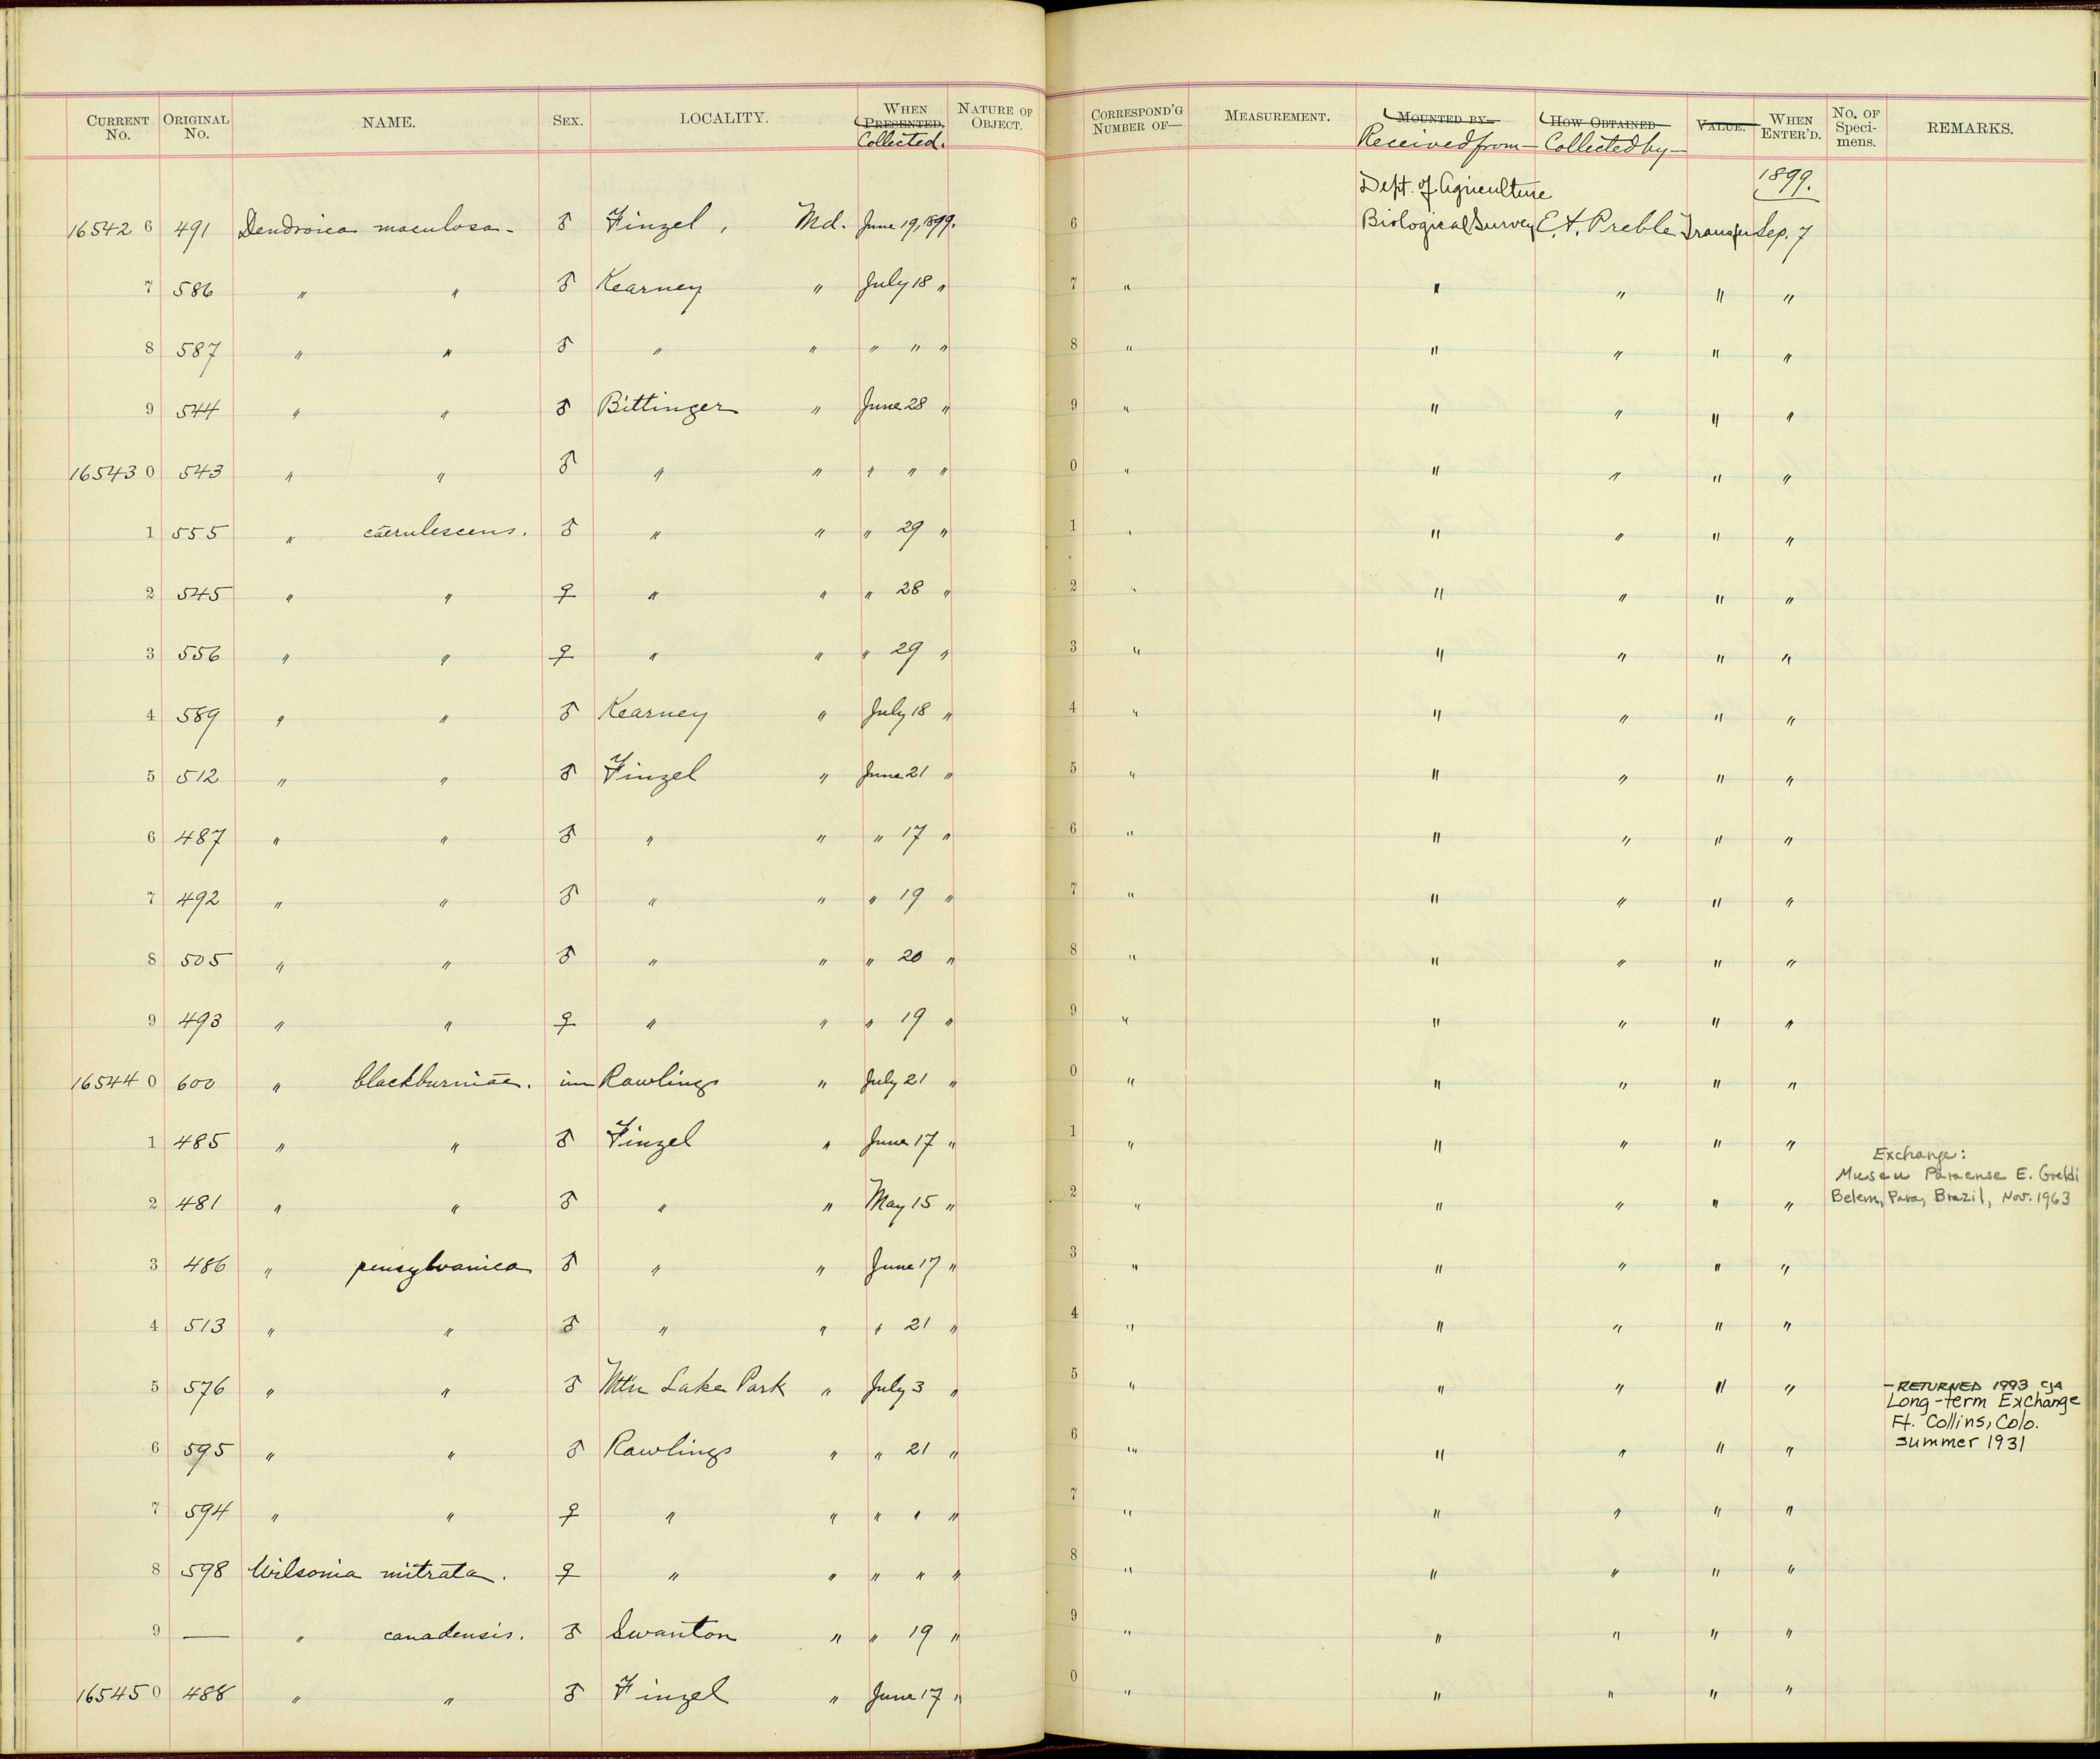 CURRENT No. ORIGINAL No. NAME. SEX. LOCALITY. WHEN PRESENTED. Collected. NATURE OF OBJECT. CORRESPOND'G NUMBER OF— MEASUREMENT. MOUNTED BY— Received from— HOW OBTAINED— Collected by— VALUE. WHEN ENTER'D. No. OF Specimens. REMARKS.
Dept. of Agriculture 1899.
16542 6 491 Dendroica maculosa. ♂ Finzel, Md. June 19, 1899. 6 Biological Survey E. A. Preble Transfer Sep. 7
7 586 " " ♂ Kearney " July 18 " 7 " " " " "
8 587 " " ♂ " " " " " 8 " " " " "
9 544 " " ♂ Bittinger " June 28 " 9 " " " " "
16543 0 543 " " ♂ " " " " " 0 " " " " "
1 555 " caerulescens. ♂ " " " 29 " 1 " " " " "
2 545 " " ♀ " " " 28 " 2 " " " " "
3 556 " " ♀ " " " 29 " 3 " " " " "
4 589 " " ♂ Kearney " July 18 " 4 " " " " "
5 512 " " ♂ Finzel " June 21 " 5 " " " " "
6 487 " " ♂ " " " 17 " 6 " " " " "
7 492 " " ♂ " " " 19 " 7 " " " " "
8 505 " " ♂ " " " 20 " 8 " " " " "
9 493 " " ♀ " " " 19 " 9 " " " " "
16544 0 600 " blackburniae. im Rawlings " July 21 " 0 " " " " "
1 485 " " ♂ Finzel " June 17 " 1 " " " " "
Exchange:
Museu Paraense E. Goeldi
2 481 " " ♂ " " May 15 " 2 " " " " " Belem, Para, Brazil, Nov. 1963
3 486 " pensylvanica ♂ " " June 17 " 3 " " " " "
4 513 " " ♂ " " " 21 " 4 " " " " "
5 576 " " ♂ Mtn Lake Park " July 3 " 5 " " " " " – RETURNED 1993 CJA
Long-term Exchange
Ft. Collins, Colo.
6 595 " " ♂ Rawlings " " 21 " 6 " " " " " summer 1931
7 594 " " ♀ " " " " " 7 " " " " "
8 598 Wilsonia mitrata. ♀ " " " " " 8 " " " " "
9 — " canadensis. ♂ Swanton " " 19 " 9 " " " " "
16545 0 488 " " ♂ Finzel " June 17 " 0 " " " " "